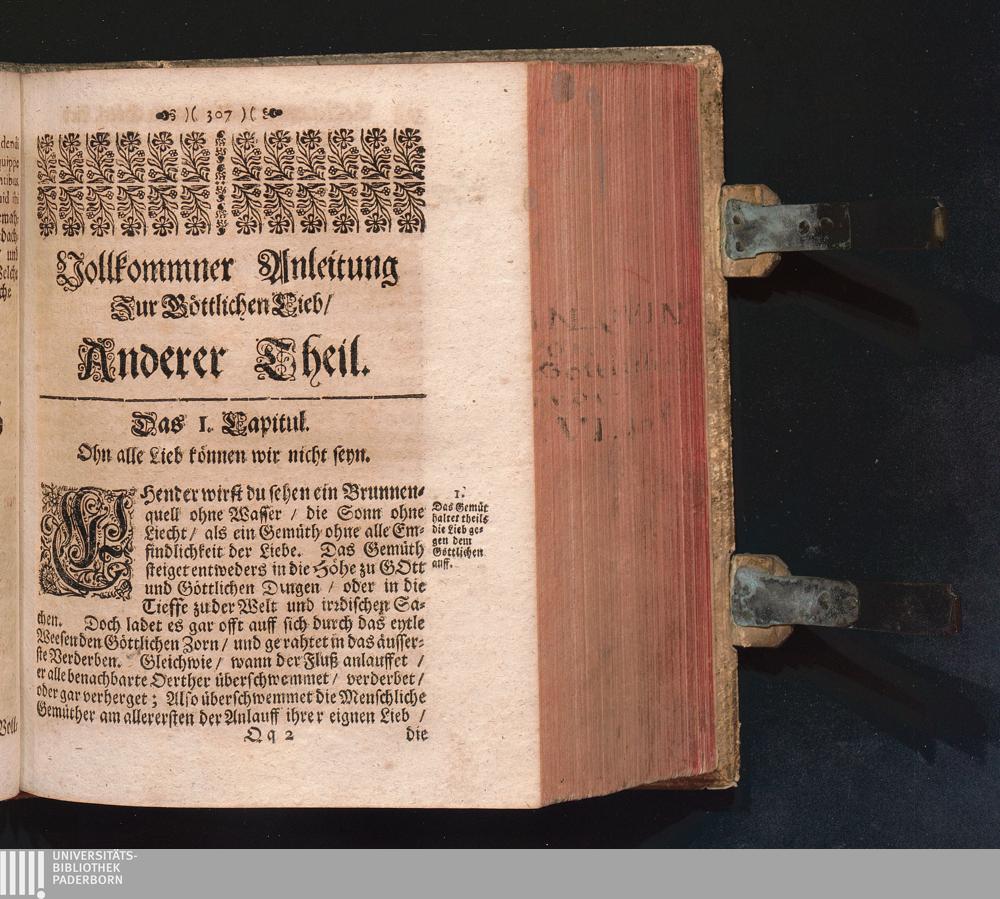 )( 307 )(
Vollkommner Anleitung
Zur Göttlichen Lieb/
Anderer Theil.
Das I. Capitul.
Ohn alle Lieb können wir nicht seyn.
EHender wirst du sehen ein Brunnen-
quell ohne Wasser / die Sonn ohne
Liecht / als ein Gemüth ohne alle Em-
findlichkeit der Liebe. Das Gemüth
steiget entweders in die Höhe zu GOtt
und Göttlichen Dingen / oder in die
Tieffe zu der Welt und irrdischen Sa-
chen. Doch ladet es gar offt auff sich durch das eytle
Weesen den Göttlichen Zorn / und gerahtet in das äusser-
ste Verderben. Gleichwie / wann der Fluß anlauffet /
er alle benachbarte Oerther überschwemmet / verderbet /
oder gar verherget ; Also überschwemmet die Menschliche
Gemüther am allerersten der Anlauff ihrer eignen Lieb /
Qq 2 die
1.
Das Gemüt
haltet theils
die Lieb ge-
gen dem
Göttlichen
auff.
UNIVERSITÄTS-
BIBLIOTHEK
PADERBORN